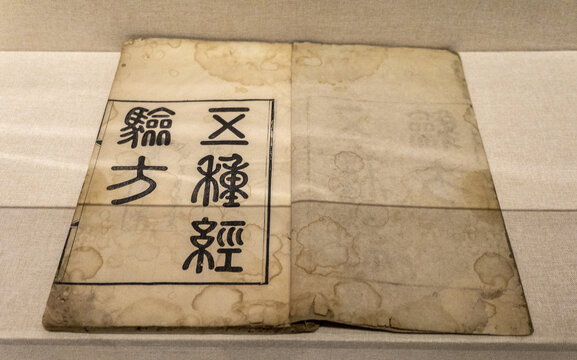 五種經
驗方